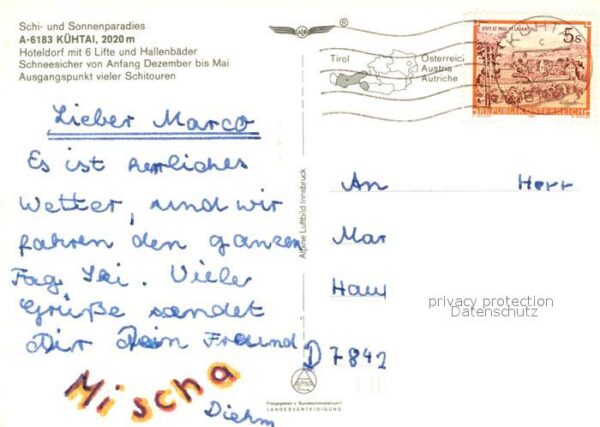 Schi- und Sonnenparadies
A-6183 KÜHTAI, 2020 m
Hoteldorf mit 6 Lifte und Hallenbäder
Schneesicher von Anfang Dezember bis Mai
Ausgangspunkt vieler Schitouren
®
Tirol
Österreich
Austria
Autriche
5s
REPUBLIK ÖSTERREICH
Lieber Marco
Es ist herrliches
Wetter, und wir
fahren den ganzen
Tag Ski. Viele
Grüße sendet
Dir Dein Freund
Mischa
Diehm
Alpine Luftbild Innsbruck
An Herr
Mar
Hau
privacy protection
Datenschutz
D 7842
ALPINE
Freigegeben v. Bundesministerium f.
LANDESVERTEIDIGUNG